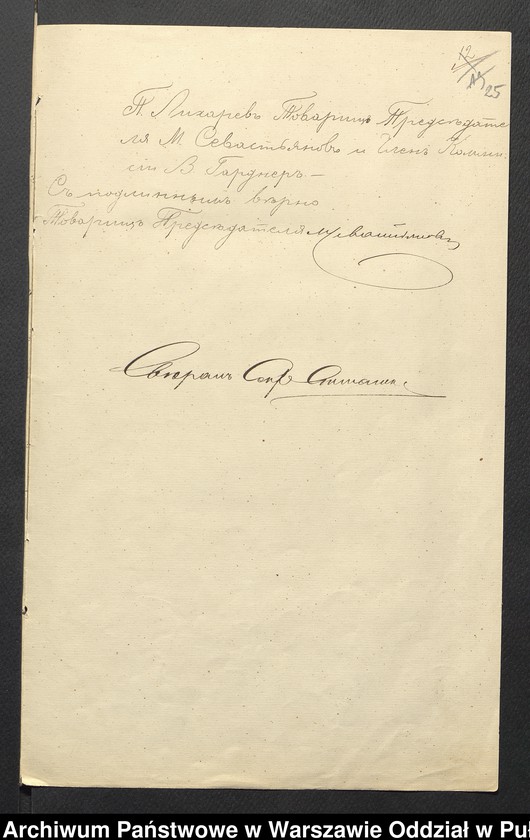 12
25
П. Лихаревъ Товарищъ Предсѣдате
ля М. Севастьяновъ и Членъ Комми
сіи В Гарднеръ —
Съ подлиннымъ вѣрно
Товарищъ Предсѣдателя М Севастьяновъ
Свѣрилъ Секр
Archiwum Państwowe w Warszawie Oddział w Pu